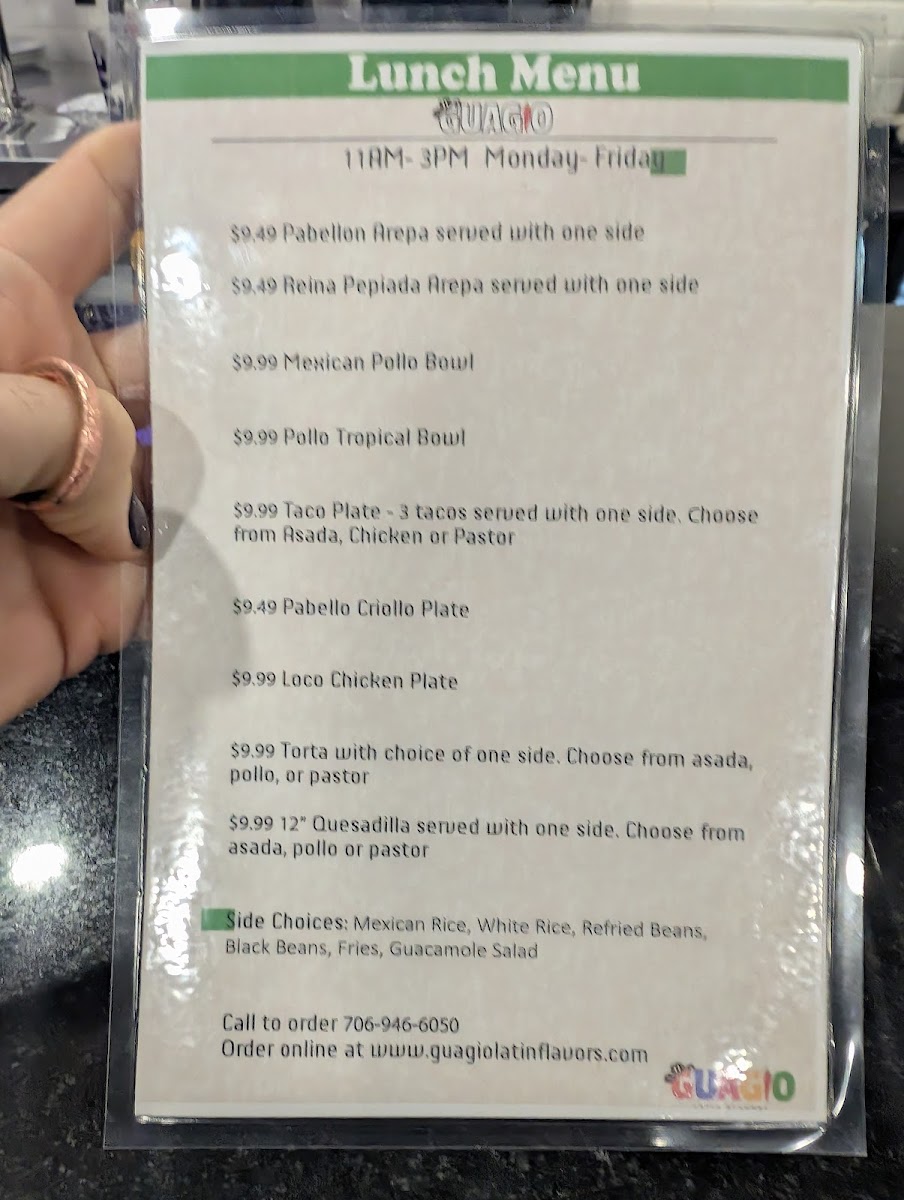 Lunch Menu
GUAGIO
11AM- 3PM Monday- Friday
$9.49 Pabellon Arepa served with one side
$9.49 Reina Pepiada Arepa served with one side
$9.99 Mexican Pollo Bowl
$9.99 Pollo Tropical Bowl
$9.99 Taco Plate - 3 tacos served with one side. Choose
from Asada, Chicken or Pastor
$9.49 Pabello Criollo Plate
$9.99 Loco Chicken Plate
$9.99 Torta with choice of one side. Choose from asada,
pollo, or pastor
$9.99 12" Quesadilla served with one side. Choose from
asada, pollo or pastor
Side Choices: Mexican Rice, White Rice, Refried Beans,
Black Beans, Fries, Guacamole Salad
Call to order 706-946-6050
Order online at www.guagiolatinflavors.com
GUAGIO